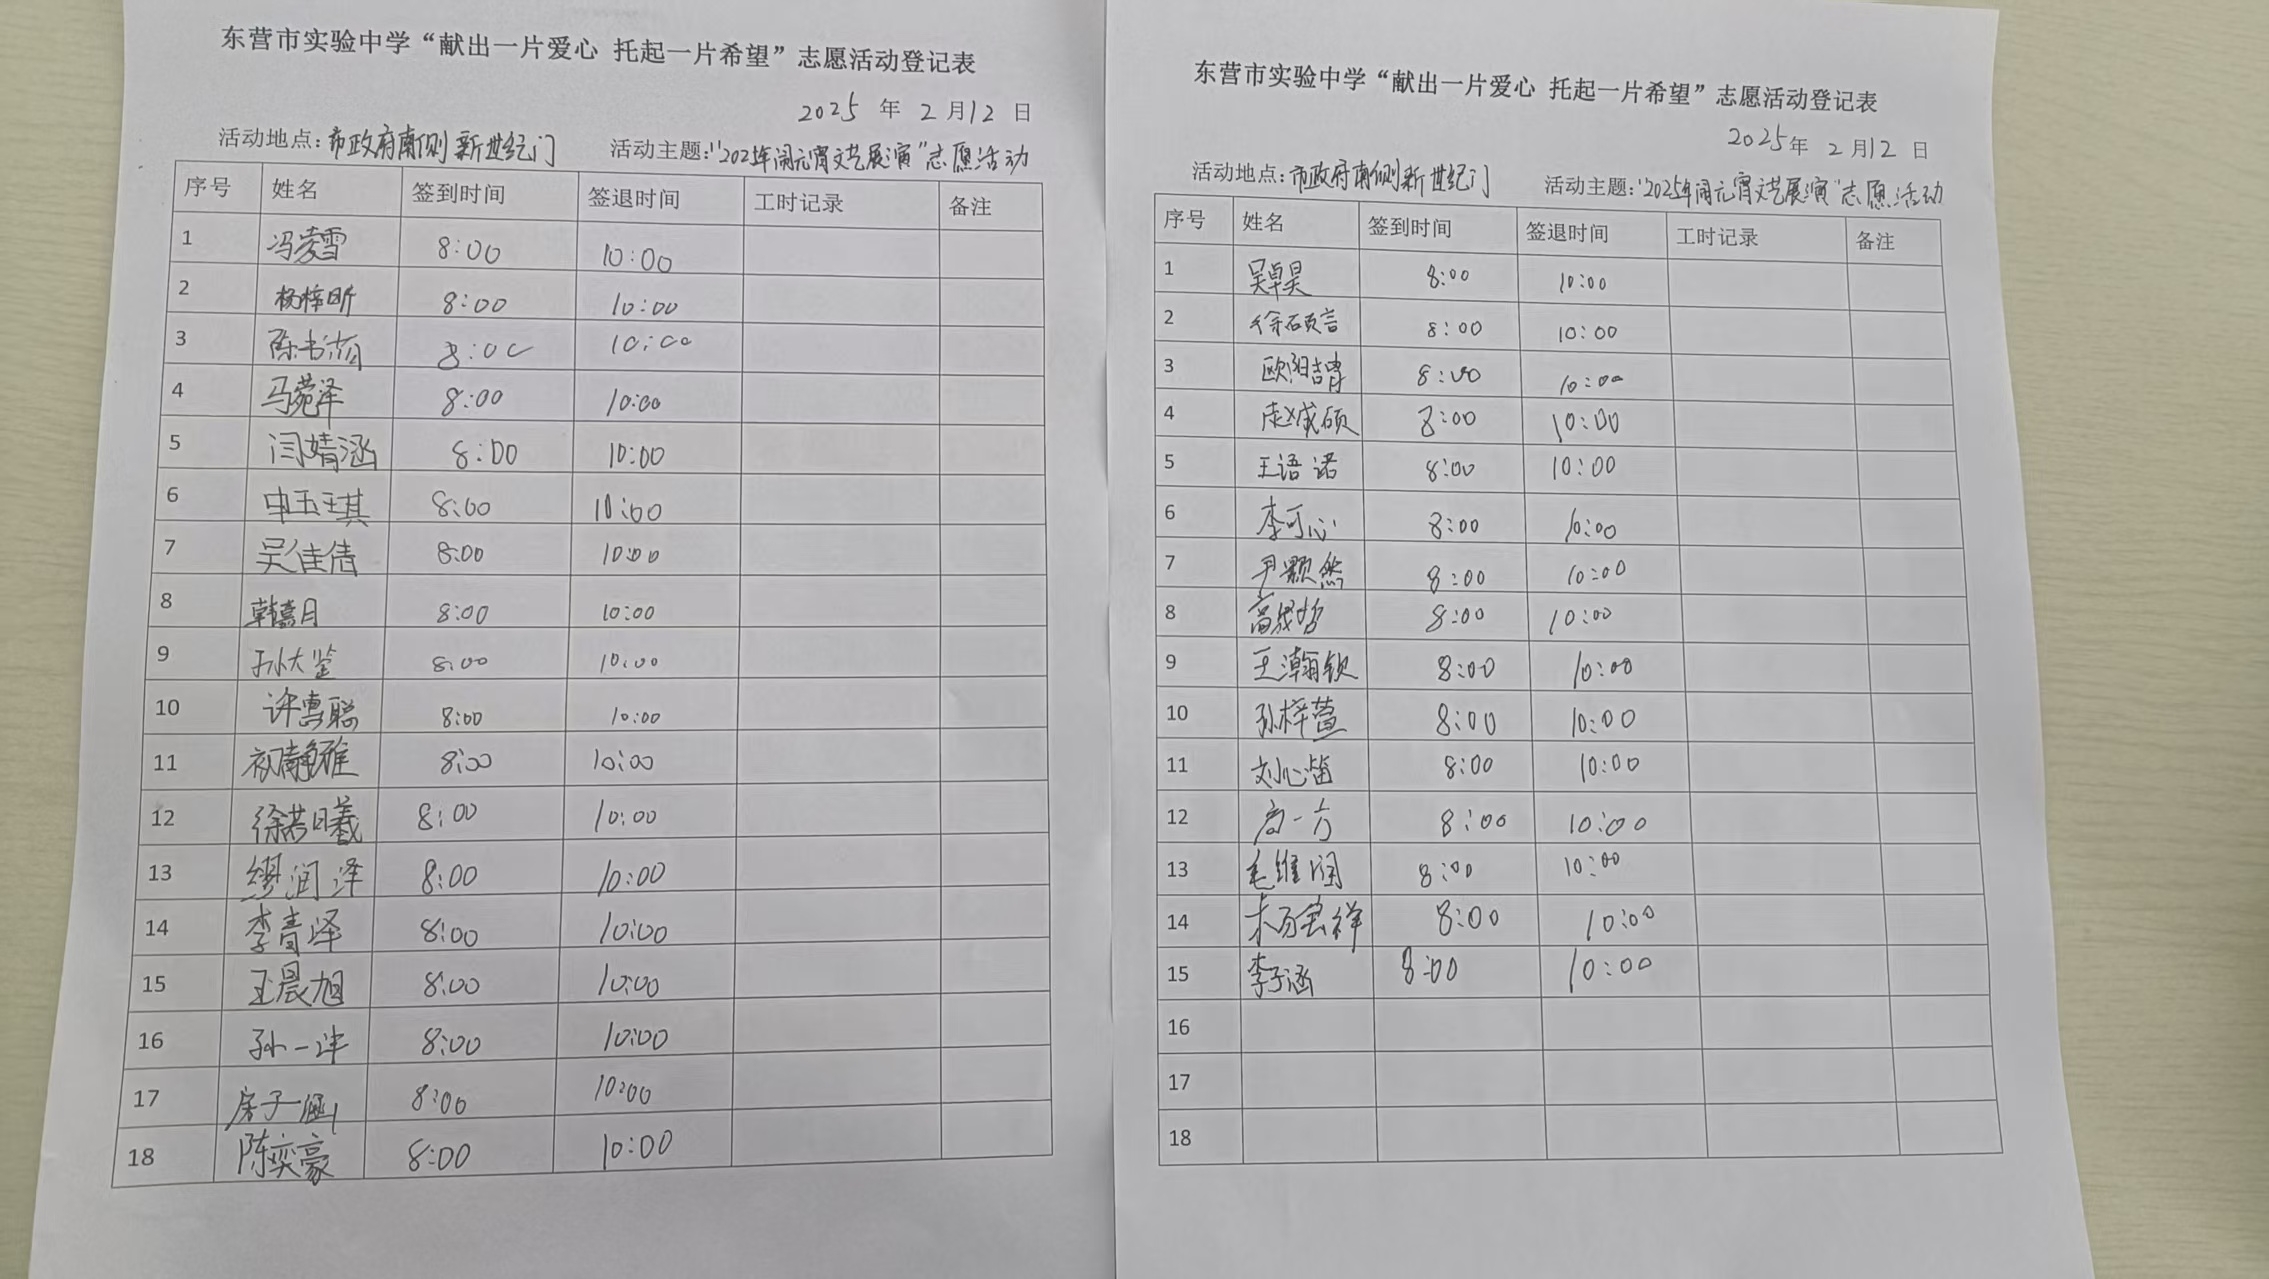 东营市实验中学“献出一片爱心 托起一片希望”志愿活动登记表
2025 年 2 月 12 日
活动地点：市政府南侧新世纪门 活动主题：“2025年闹元宵文艺展演”志愿活动
序号 姓名 签到时间 签退时间 工时记录 备注
1 冯凌雪 8:00 10:00
2 杨梓昕 8:00 10:00
3 陈书 8:00 10:00
4 马菀泽 8:00 10:00
5 闫婧涵 8:00 10:00
6 申玉琪 8:00 10:00
7 吴佳倩 8:00 10:00
8 韩熹月 8:00 10:00
9 孙大鉴 8:00 10:00
10 许惠聪 8:00 10:00
11 初静雅 8:00 10:00
12 徐若曦 8:00 10:00
13 缪润泽 8:00 10:00
14 李青泽 8:00 10:00
15 王晨旭 8:00 10:00
16 孙一 8:00 10:00
17 房子涵 8:00 10:00
18 陈奕豪 8:00 10:00
东营市实验中学“献出一片爱心 托起一片希望”志愿活动登记表
2025 年 2 月 12 日
活动地点：市政府南侧新世纪门 活动主题：“2025年闹元宵文艺展演”志愿活动
序号 姓名 签到时间 签退时间 工时记录 备注
1 吴卓昊 8:00 10:00
2 徐硕言 8:00 10:00
3 欧阳喆胄 8:00 10:00
4 赵城硕 8:00 10:00
5 王语诺 8:00 10:00
6 李可心 8:00 10:00
7 尹颢然 8:00 10:00
8 高 哲 8:00 10:00
9 王瀚钦 8:00 10:00
10 孙梓萱 8:00 10:00
11 刘心笛 8:00 10:00
12 高一方 8:00 10:00
13 毛维润 8:00 10:00
14 祥 8:00 10:00
15 李子涵 8:00 10:00
16
17
18